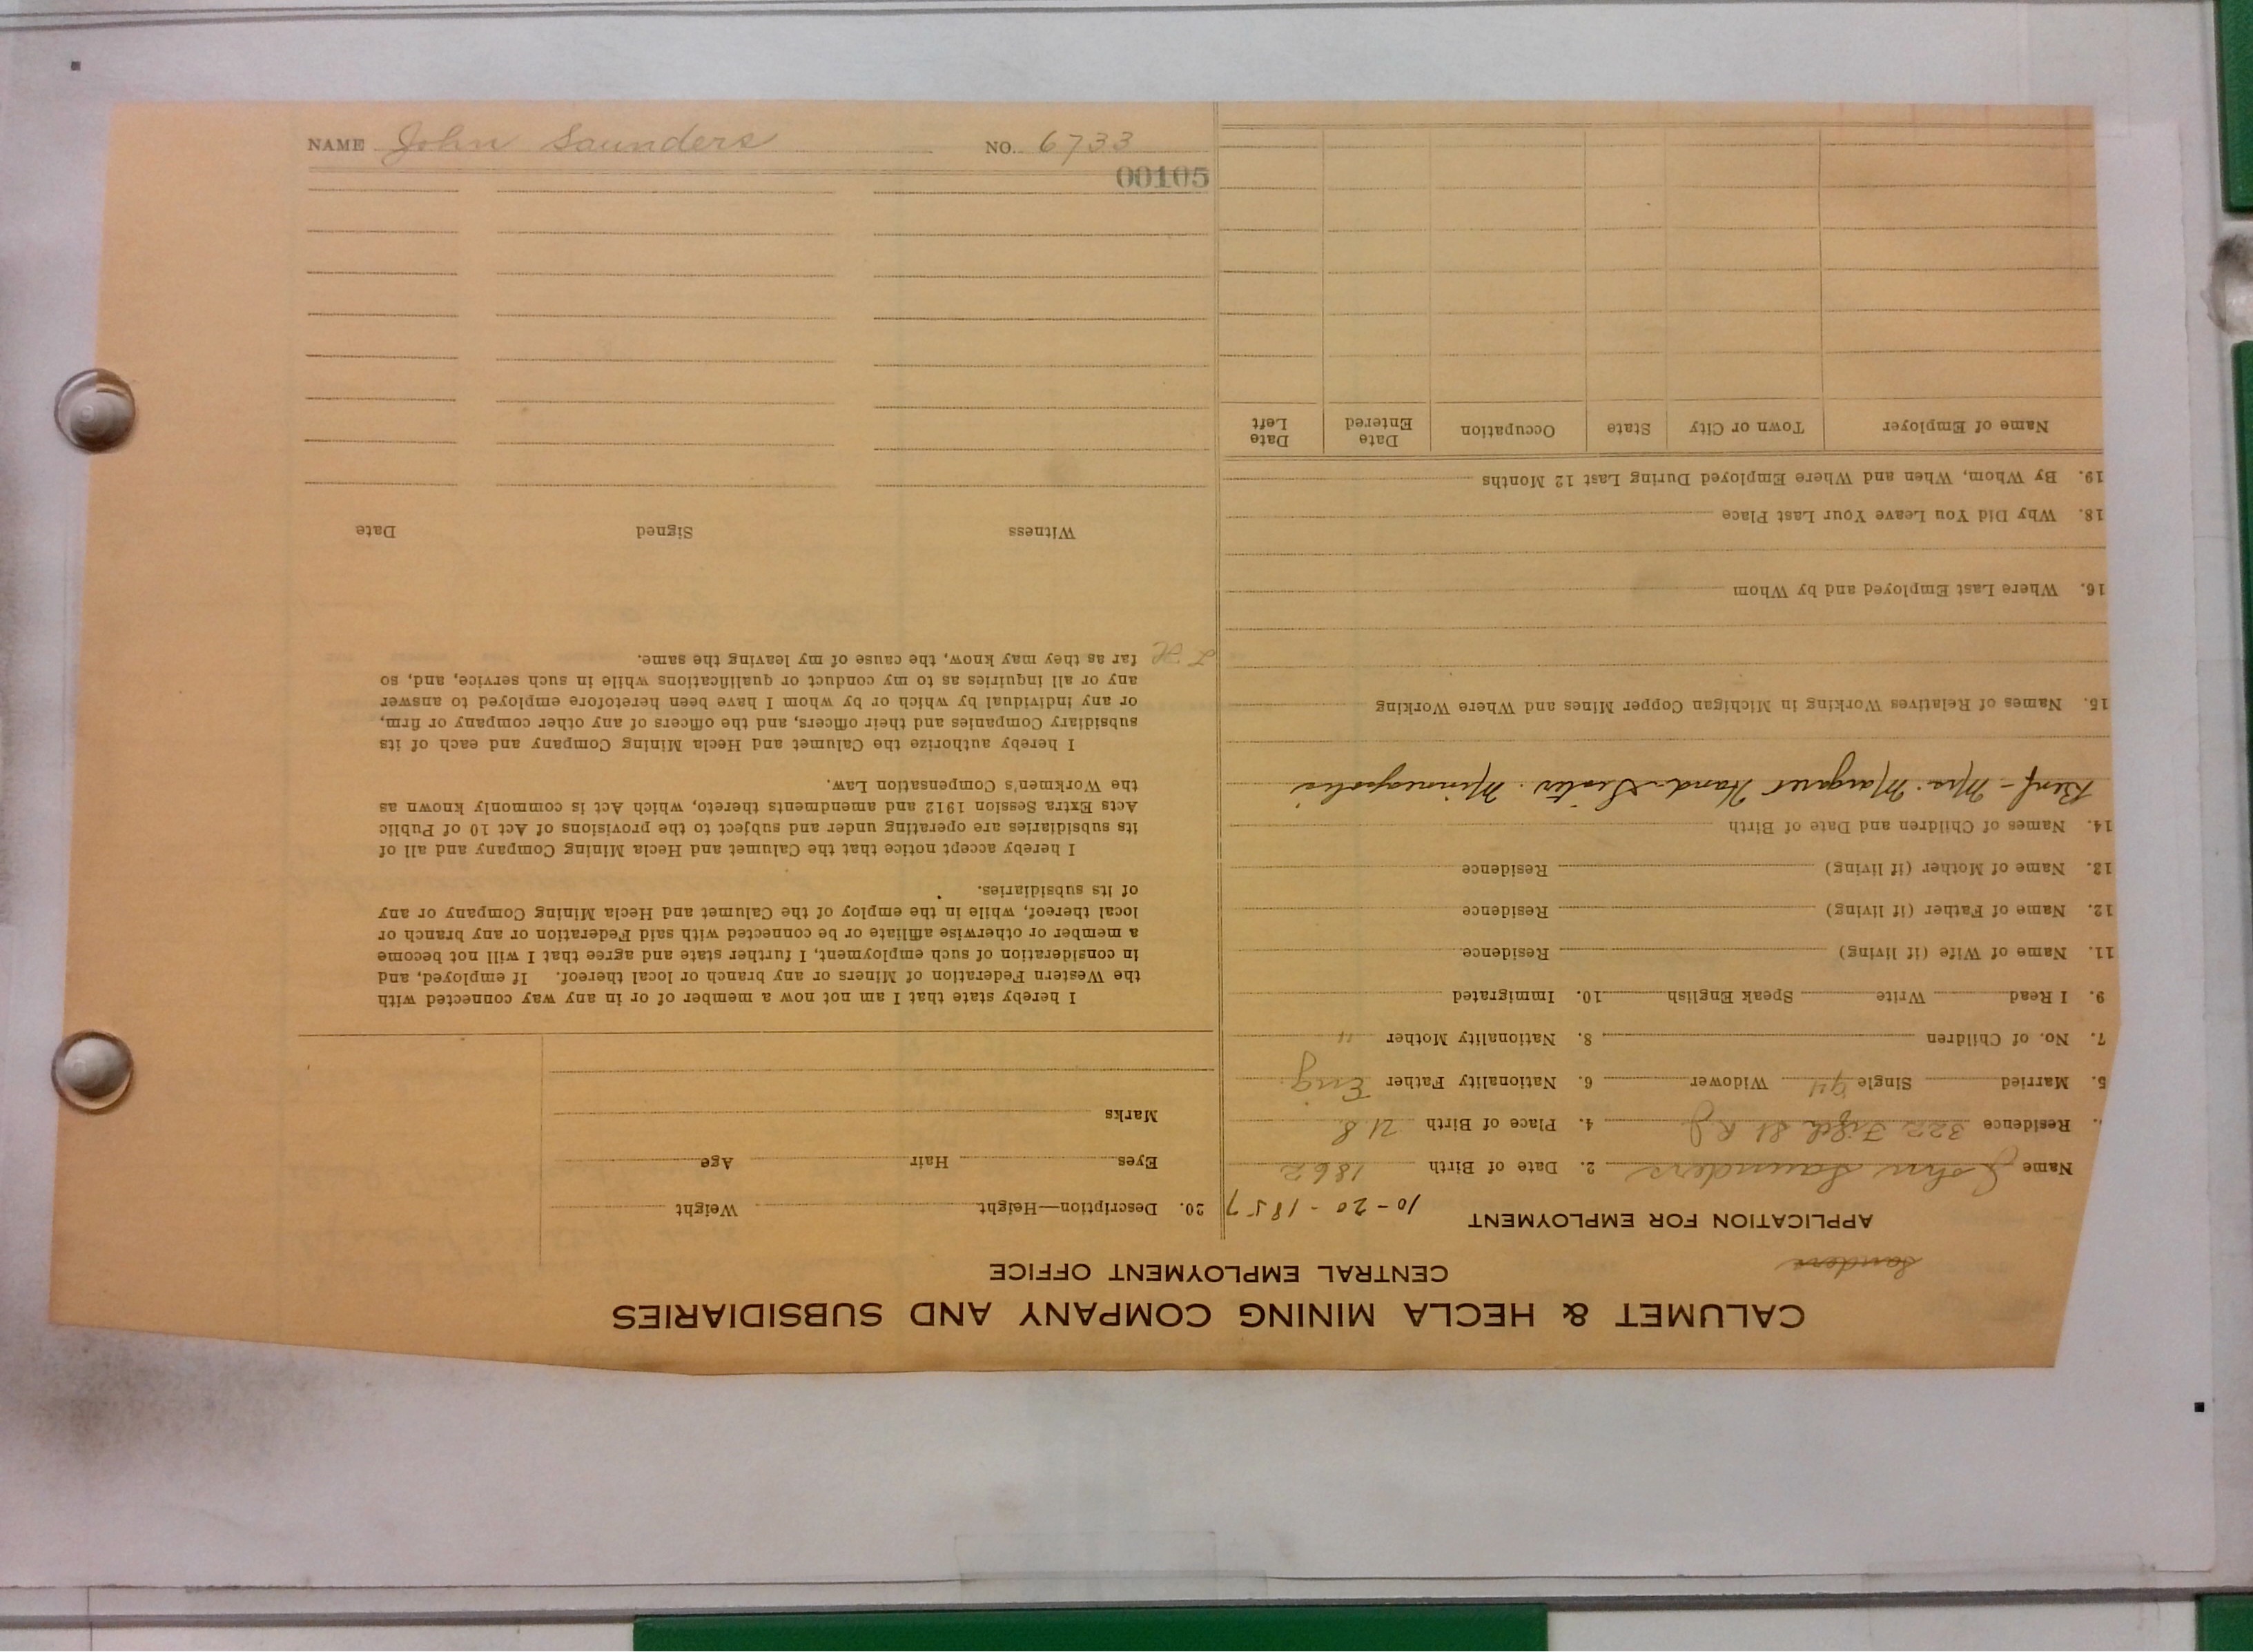 NAME John Saunders NO. 6733
00105
CALUMET & HECLA MINING COMPANY AND SUBSIDIARIES
CENTRAL EMPLOYMENT OFFICE
Sanders
APPLICATION FOR EMPLOYMENT
10-20-1857
Name John Saunders 2. Date of Birth 1862
Residence 322 Fifth St R J 4. Place of Birth U S
5. Married Single Widower 6. Nationality Father Eng
7. No. of Children 8. Nationality Mother "
9. I Read Write Speak English 10. Immigrated
11. Name of Wife (if living) Residence
12. Name of Father (if living) Residence
13. Name of Mother (if living) Residence
14. Names of Children and Date of Birth
Benf - Mrs. Margaret Hand-Sister. Minneapolis
15. Names of Relatives Working in Michigan Copper Mines and Where Working
16. Where Last Employed and by Whom
18. Why Did You Leave Your Last Place
19. By Whom, When and Where Employed During Last 12 Months
Name of Employer Town or City State Occupation Date Entered Date Left
20. Description—Height Weight
Eyes Hair Age
Marks
I hereby state that I am not now a member of or in any way connected with
the Western Federation of Miners or any branch or local thereof. If employed, and
in consideration of such employment, I further state and agree that I will not become
a member or otherwise affiliate or be connected with said Federation or any branch or
local thereof, while in the employ of the Calumet and Hecla Mining Company or any
of its subsidiaries.
I hereby accept notice that the Calumet and Hecla Mining Company and all of
its subsidiaries are operating under and subject to the provisions of Act 10 of Public
Acts Extra Session 1912 and amendments thereto, which Act is commonly known as
the Workmen's Compensation Law.
I hereby authorize the Calumet and Hecla Mining Company and each of its
subsidiary Companies and their officers, and the officers of any other company or firm,
or any individual by which or by whom I have been heretofore employed to answer
any or all inquiries as to my conduct or qualifications while in such service, and, so
far as they may know, the cause of my leaving the same.
Witness Signed Date